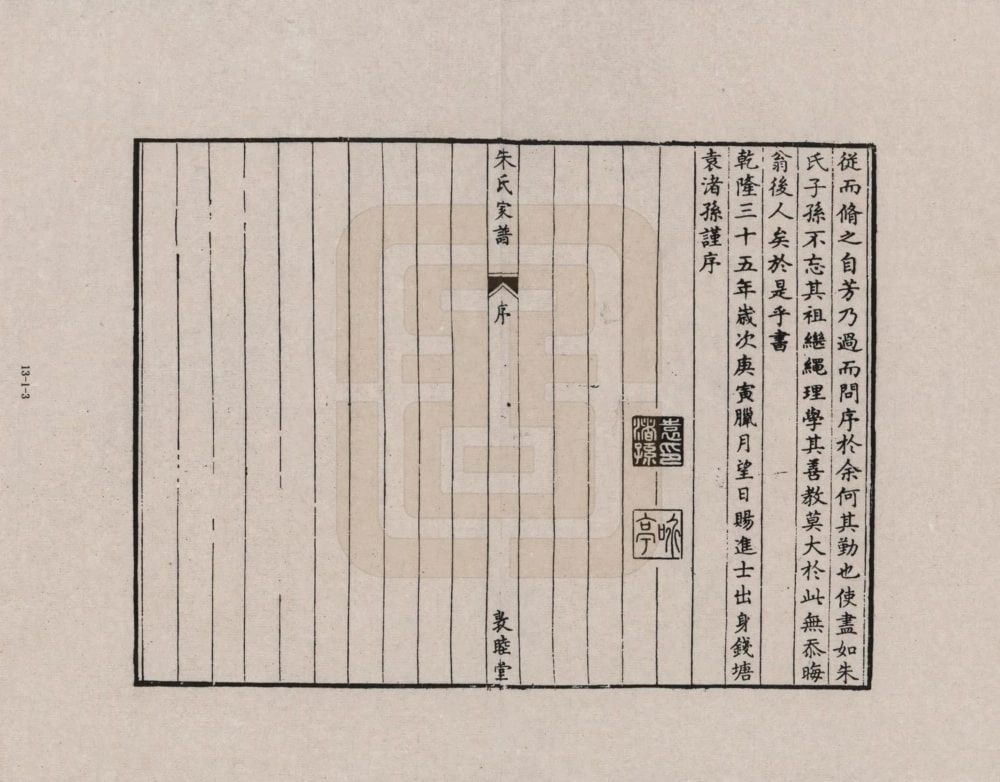 從而脩之自芳乃過而問序於余何其勤也使盡如朱
氏子孫不忘其祖繼繩理學其善教莫大於此無忝晦
翁後人矣於是乎書
乾隆三十五年歲次庚寅臘月望日賜進士出身錢塘
袁渚孫謹序
袁印
渚孫
朱氏家譜
序
敦睦堂
13-1-3